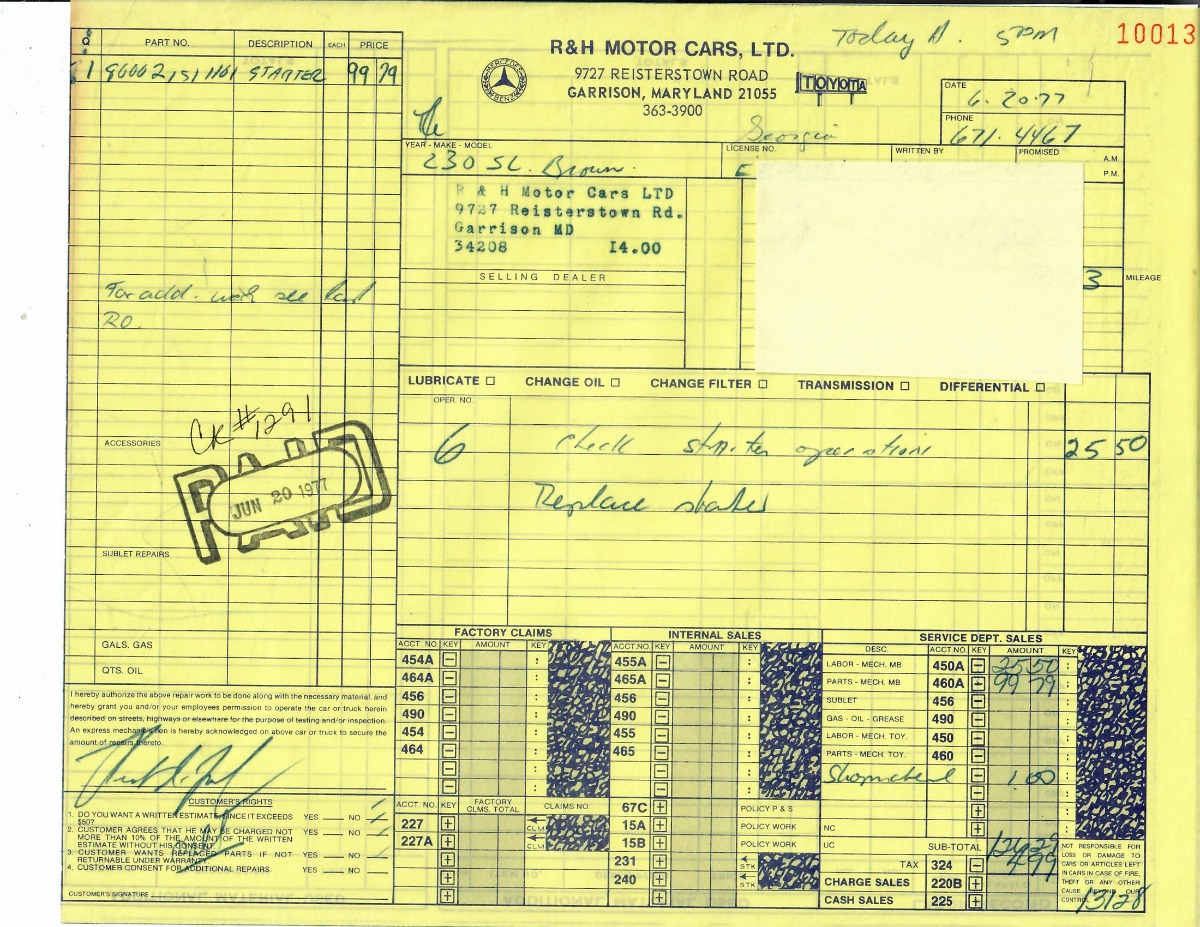 Today A. 5PM
10013
Q PART NO. DESCRIPTION EACH PRICE
1 STARTER 99 79
For add. work see
RO.
ACCESSORIES
CK #1291
PAID
JUN 20 1977
SUBLET REPAIRS
GALS. GAS
QTS. OIL
R&H MOTOR CARS, LTD.
MERCEDES BENZ
9727 REISTERSTOWN ROAD
GARRISON, MARYLAND 21055
363-3900
TOYOTA
DATE
6.20.77
PHONE
671.4467
Georgia
YEAR - MAKE - MODEL LICENSE NO. WRITTEN BY PROMISED A.M.
P.M.
230 SL. Brown.
R & H Motor Cars LTD
9727 Reisterstown Rd.
Garrison MD
34208 I4.00
SELLING DEALER
3 MILEAGE
LUBRICATE CHANGE OIL CHANGE FILTER TRANSMISSION DIFFERENTIAL
OPER. NO.
6 Check starter operation 25 50
Replace starter
FACTORY CLAIMS INTERNAL SALES SERVICE DEPT. SALES
ACCT. NO. KEY AMOUNT KEY ACCT. NO. KEY AMOUNT KEY DESC. ACCT. NO. KEY AMOUNT KEY
454A 455A LABOR - MECH. MB 450A 25 50
464A 465A PARTS - MECH. MB 460A 99 79
456 456 SUBLET 456
490 490 GAS - OIL - GREASE 490
454 455 LABOR - MECH. TOY. 450
464 465 PARTS - MECH. TOY. 460
1.00
ACCT. NO. KEY FACTORY CLMS. TOTAL CLAIMS NO. 67C POLICY P & S
227 CLM 15A POLICY WORK NC
227A CLM 15B POLICY WORK UC SUB-TOTAL 126 29
231 STK TAX 324 4 99
240 STK CHARGE SALES 220B
CASH SALES 225
NOT RESPONSIBLE FOR
LOSS OR DAMAGE TO
CARS OR ARTICLES LEFT
IN CARS IN CASE OF FIRE,
THEFT OR ANY OTHER
CAUSE BEYOND OUR
CONTROL
131 28
I hereby authorize the above repair work to be done along with the necessary material, and
hereby grant you and/or your employees permission to operate the car or truck herein
described on streets, highways or elsewhere for the purpose of testing and/or inspection.
An express mechanic's lien is hereby acknowledged on above car or truck to secure the
amount of repairs thereto.
CUSTOMER'S RIGHTS
1. DO YOU WANT A WRITTEN ESTIMATE SINCE IT EXCEEDS $50? YES NO
2. CUSTOMER AGREES THAT HE MAY BE CHARGED NOT
MORE THAN 10% OF THE AMOUNT OF THE WRITTEN
ESTIMATE WITHOUT HIS CONSENT. YES NO
3. CUSTOMER WANTS REPLACED PARTS IF NOT
RETURNABLE UNDER WARRANTY YES NO
4. CUSTOMER CONSENT FOR ADDITIONAL REPAIRS. YES NO
CUSTOMER'S SIGNATURE